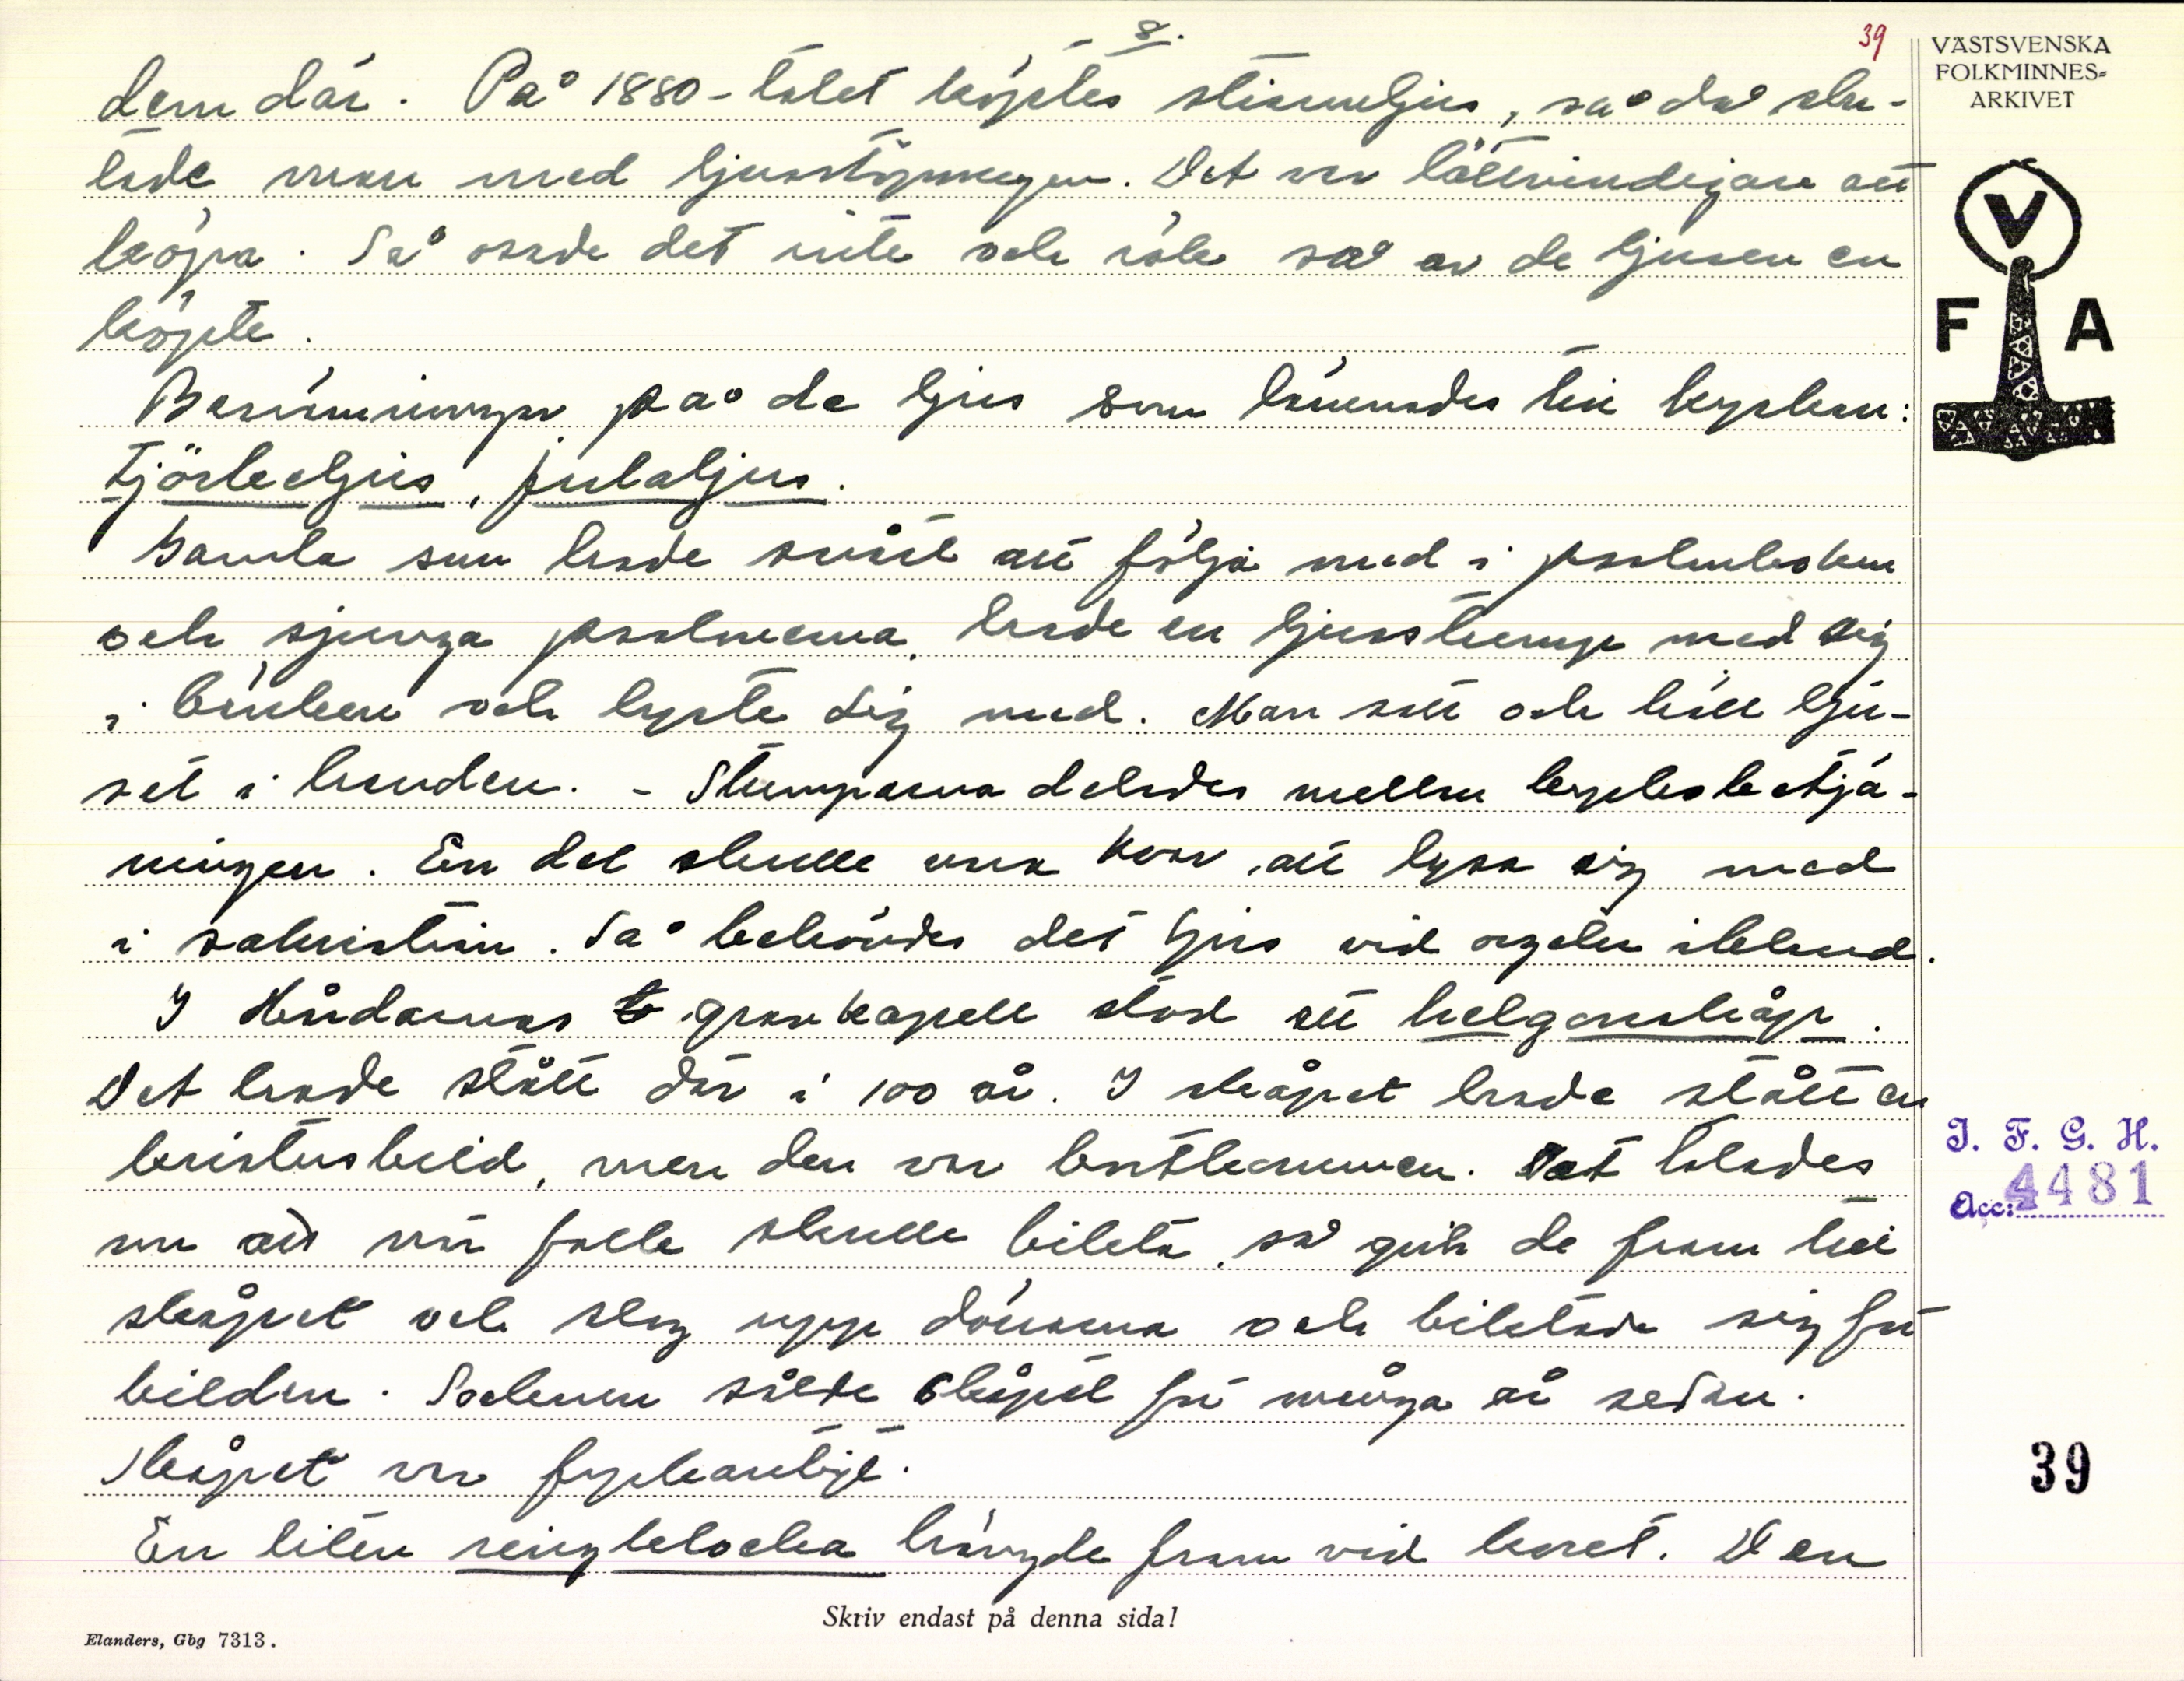 8.
39
dem där. På 1880-talet köptes stearinljus, så då slu-
tade man med ljusstöpningen. Det var lättvindigare att
köpa. Så osade det inte och rök så av de ljusen en
köpte.
Benämningen på de ljus som lämnades till kyrkan:
tjörkeljus, julaljus.
Gamla som hade svårt att följa med i psalmboken
och sjunga psalmerna, hade en ljusstump med sig
i bänken och lyste sig med. Man satt och höll lju-
set i handen. - Stumparna delades mellan kyrkobetjä-
ningen. En del skulle vara kvar, att lysa sig med
i sakristian. Så behövdes det ljus vid orgeln ibland.
I Hindarnas gravkapell stod ett helgonskåp.
Det hade stått där i 100 år. I skåpet hade stått en
kristusbild, men den var bortkommen. Det talades
om att när folk skulle bikta, så gick de fram till
skåpet och slog upp dörrarna och biktade sig för
bilden. Socknen sålde skåpet för många år sedan.
Skåpet var fyrkantigt.
En liten ringklocka hängde fram vid koret. Den
VÄSTSVENSKA
FOLKMINNES-
ARKIVET
V
F A
I. F. G. H.
Acc: 4481
39
Skriv endast på denna sida!
Elanders, Gbg 7313.